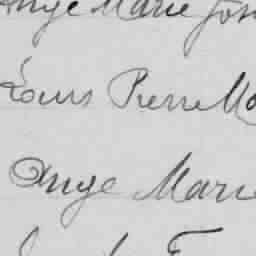 Ange Marie Jos
Louis Pierre Ma
Ange Marie